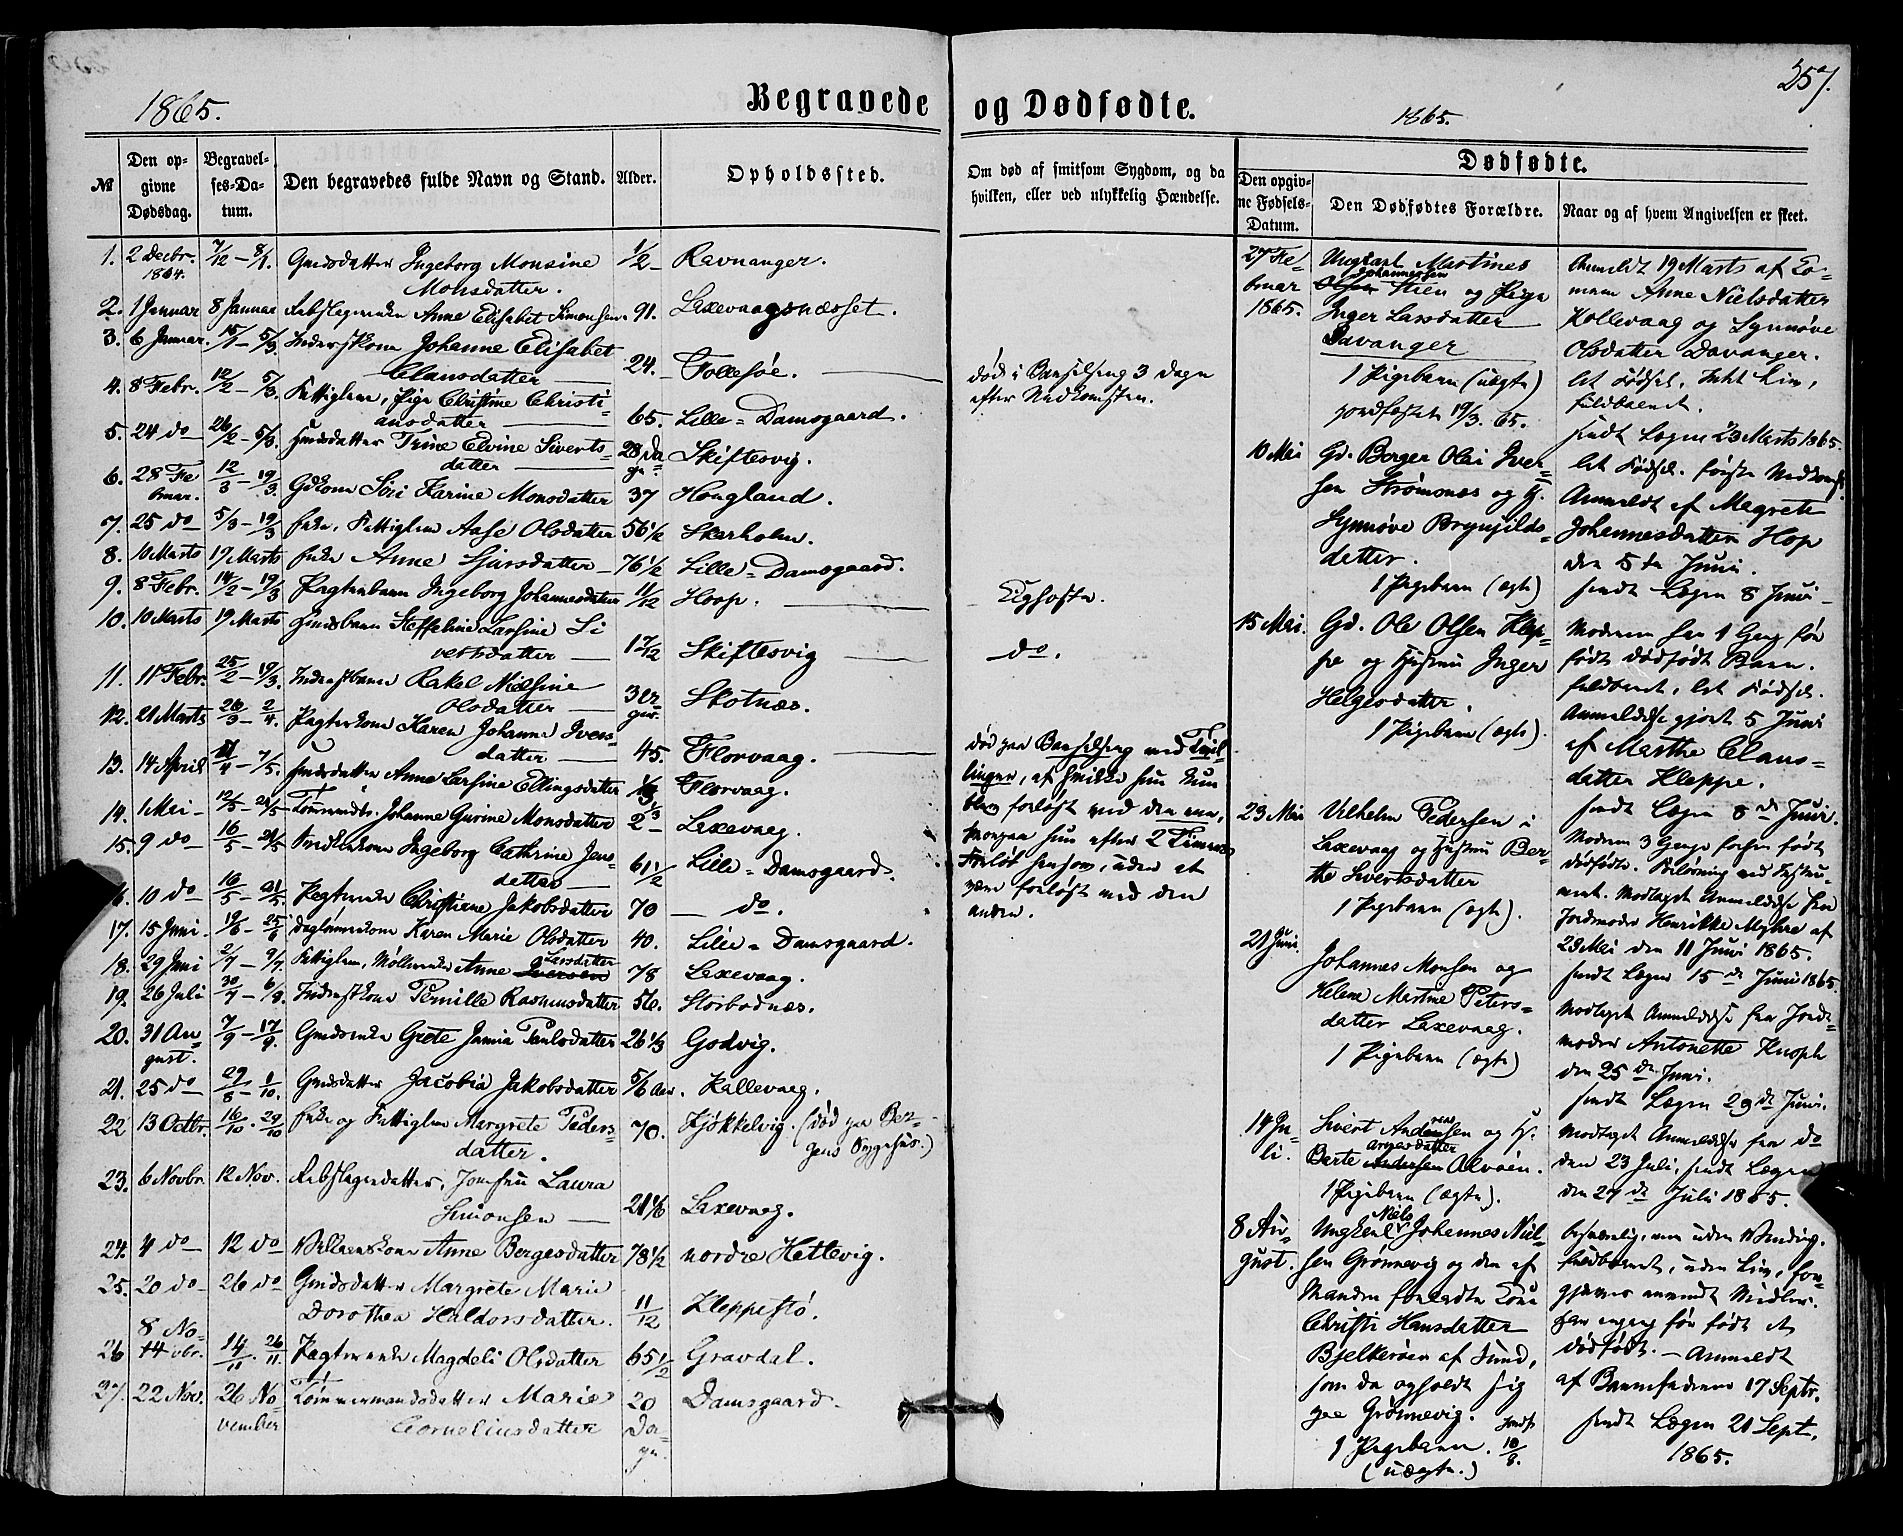 257.
1865.
Begravede
og Dødfødte.
1865.
№
Den opgivne Dødsdag.
Begravelses-Datum.
Den begravedes fulde Navn og Stand.
Alder.
Opholdssted.
Om død af smitsom Sygdom, og da hvilken, eller ved ulykkelig Hændelse.
Dødfødte.
Den opgivne Fødsels-Datum.
Den Dødfødtes Forældre.
Naar og af hvem Angivelsen er skeet.
1. 2 Decbr. 1864. 7/12 – 8/1. Gmdsdatter Ingeborg Monsine 1/2 – Ravnanger.
Monsdatter.
2. 1 Januar 8 Januar Anne Elisabet Simonsen. 91. Laxevaagsnæsset.
3. 6 Januar. 15/1 – 5/3. Johanne Elisabet
Clausdatter 24. Follesøe.
død i Barselseng 3 Dage
efter Nedkomsten.
4. 8 Febr. 12/2 – 5/3. Fattiglem, Pige Christine Christi-
ansdatter 65. Lille-Damsgaard.
5. 24 do 26/2 – 5/3. Gmdsdatter Trine Elvine Siverts-
datter 28 Da- ge. Skiftesvig.
6. 28 Fe- bruar. 12/3 – 19/3. Gdkone Siri Karine Monsdatter 37 Hougland.
7. 25 do 5/3 – 19/3 Enke, Fattiglem Aase Olsdatter 56 1/2 Skarholm.
8. 10 Marts 17 Marts Enke Anne Sjursdatter 76 1/2 Lille-Damsgaard.
9. 8 Febr. 14/2 – 19/3 Pagterbarn Ingeborg Johannesdatter 11/12 Hoop.
Kighoste.
10. 10 Marts 19 Marts Gmdsbarn Steffeline Larsine Si
vertsdatter 1 7/12 Skiftesvig
do.
11. 11 Febr. 25/2 – 19/3. Rakel Nielsine
Olsdatter 3 Skotnæs.
12. 21 Marts 26/3 – 2/4. Pagterkone Karen Johanne Ivers-
datter 45. Florvaag.
død paa Barselseng med Tvil-
lingen, af hvilke hun kun
blev forløst med den ene,
hvorpaa hun efter 2 Timers
Forløb hensov, uden at
være forløst med den
anden.
13. 14 April 7/5. Gmdsdatter Anne Larsine Ellingsdatter Florvaag.
14. 1 Mei 12/5 – 21/5 Johanne Gurine Monsdatter 2 Laxevaag.
15. 9 do 16/5 – 21/5 Ingeborg Cathrine Jens-
datter 61 1/2 Lille-Damsgaard.
16. 10 do 16/5 – 21/5. Pagterenke Christiane Jakobsdatter 70 – do.
17. 15 Juni 19/6 – 25/6 Karen Marie Olsdatter 40. Lille-Damsgaard.
18. 29 Juni 2/7 – 9/7. Fattiglem, Møllerenke Anne Larsdatter 78 Laxevaag.
19. 26 Juli 30/7 – 6/8. Pernille Rasmusdatter 56. Storbodnæs.
20. 31 Au- gust. 7/9 – 17/9. Gmdsenke Grete Jannia Paulsdatter 26 1/3 Godvig.
21. 25 do 29/8 – 1/10. Gmdsdatter Jacobia Jakobsdatter 5/6 Aar. Kallevaag.
22 13 Octbr. 16/10 . 29/10 Enke og Fattiglem Margrete Peders-
datter. 70. Kjøkkelvig. (død paa Ber-
gens Sygehus.)
23. 6 Novbr. 12 Nov. Rebslagerdatter, Jomfru Laura
Simonsen 21 1/6 Laxevaag.
24. 4 do 12 do Anne Bergesdatter 78 1/2 nordre Hettevig.
25. 20 do 26 do Gmdsdatter Margrete Marie
Dorothea Haldorsdatter. 11/12 Kleppestø.
26 8 No- vbr. 14/11 . 26/11. Pagterenke Magdeli Olsdatter 65 1/2 Gravdal.
27. 22 Nov. 26 No- vember Tømmermandsdatter Marie
Corneliusdatter 20 Da- ge. Damsgaard.
27 Fe- bruar 1865.
Ungkarl Martines
Johannessen
Stien og Pige
Inger Larsdatter
Davanger
1 Pigebarn (uægte)
jordfæstet 19/3. 65.
Anmeldt 19 Marts af Jo-
mem Anne Nielsdatter
Kollevaag og Synnøve
Olsdatter Davanger.
let Fødsel, intet Liv,
fuldbaaret.
sendt Lægen 23 Marts 1865.
10 Mei
Gd. Berger Olai Iver-
sen Strømsnes og H.
Synnøve Brynjilds-
datter.
1 Pigebarn (ægte)
let Fødsel. første Nedkomst.
Anmeldt af Megrete
Johannesdatter Hop
den 5te Juni.
sendt Lægen 8 Juni
15 Mei.
Gd. Ole Olsen Klep-
pe og Hustru Inger
Helgesdatter.
1 Pigebarn (ægte).
Moderen har 1 Gang før
født dødfødt Barn.
fuldbaaret, let Fødsel.
Anmeldelse gjort 5 Juni
af Marthe Claus-
datter Kleppe.
sendt Lægen 8de Juni.
23 Mei
Vilhelm Pedersen i
Laxevaag og Hustru Ber-
the Sivertsdatter
1 Pigebarn (ægte).
Modern 3 Gange forhen født
dødfødte. Forløsning med Instru-
ment. Modtaget Anmeldelse fra
Jordmoder Henrikke Myhre af
28 Mei den 11 Juni 1865.
sendt Lægen 15de Juni 1865.
21 Juni.
Johannes Monsen og
Helene Martine Peters-
datter Laxevaag.
1 Pigebarn (ægte)
Modtaget Anmeldelse fra Jord-
moder Antonette Knoph
den 25de Juni.
sendt Lægen 29de Juni.
14 Ju- li.
Sivert Andersen og H.
Arnesdatter
Berte Andersen Alvøen.
1 Pigebarn (ægte).
Modtaget Anmeldelse fra do
den 23 Juli, sendt Lægen
den 27de Juli 1865.
8 Au- gust.
Niels
Ungkarl Johannes Niel-
sen Grønnevig og den af
Manden forladte Kone
Christi Hansdatter
Bjelkerøen af Sund,
som da opholdt sig
paa Grønnevig.
1 Pigebarn. jordf. 10/8.
(uægte.)
besværlig, men uden Vending.
fuldbaaret, uden Liv, for-
gjæves anvendt Midler.
har engang før født et
dødfødt. – Anmeldt
af Barnefaderen 17 Septr.
sendt Lægen 21 Sept.
1865.